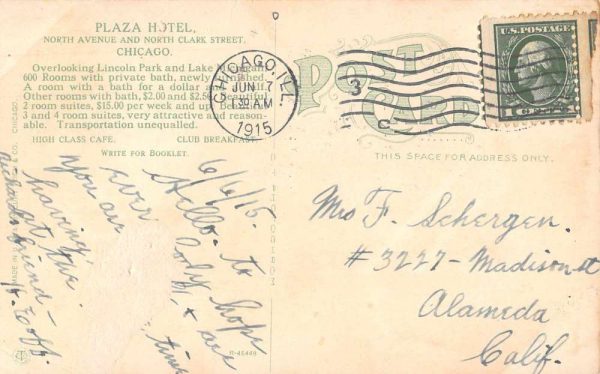 PLAZA HOTEL,
NORTH AVENUE AND NORTH CLARK STREET,
CHICAGO.
Overlooking Lincoln Park and Lake
600 Rooms with private bath, newly
A room with a bath for a dollar and
Other rooms with bath, $2.00 and $2.50. Beautiful
2 room suites, $15.00 per week and up.
3 and 4 room suites, very attractive and reason-
able. Transportation unequalled.
HIGH CLASS CAFE. CLUB BREAKFAST
WRITE FOR BOOKLET.
CHICAGO, ILL.
JUN 7
30 AM
1915
3
C
U.S. POSTAGE
POST CARD
THIS SPACE FOR ADDRESS ONLY.
6/6/15.
Hello. to
ever body hope
you are
are
having
time
at the
friend
Mrs F. Schergen.
#3227-Madison st
Alameda
Calif.
R-45449